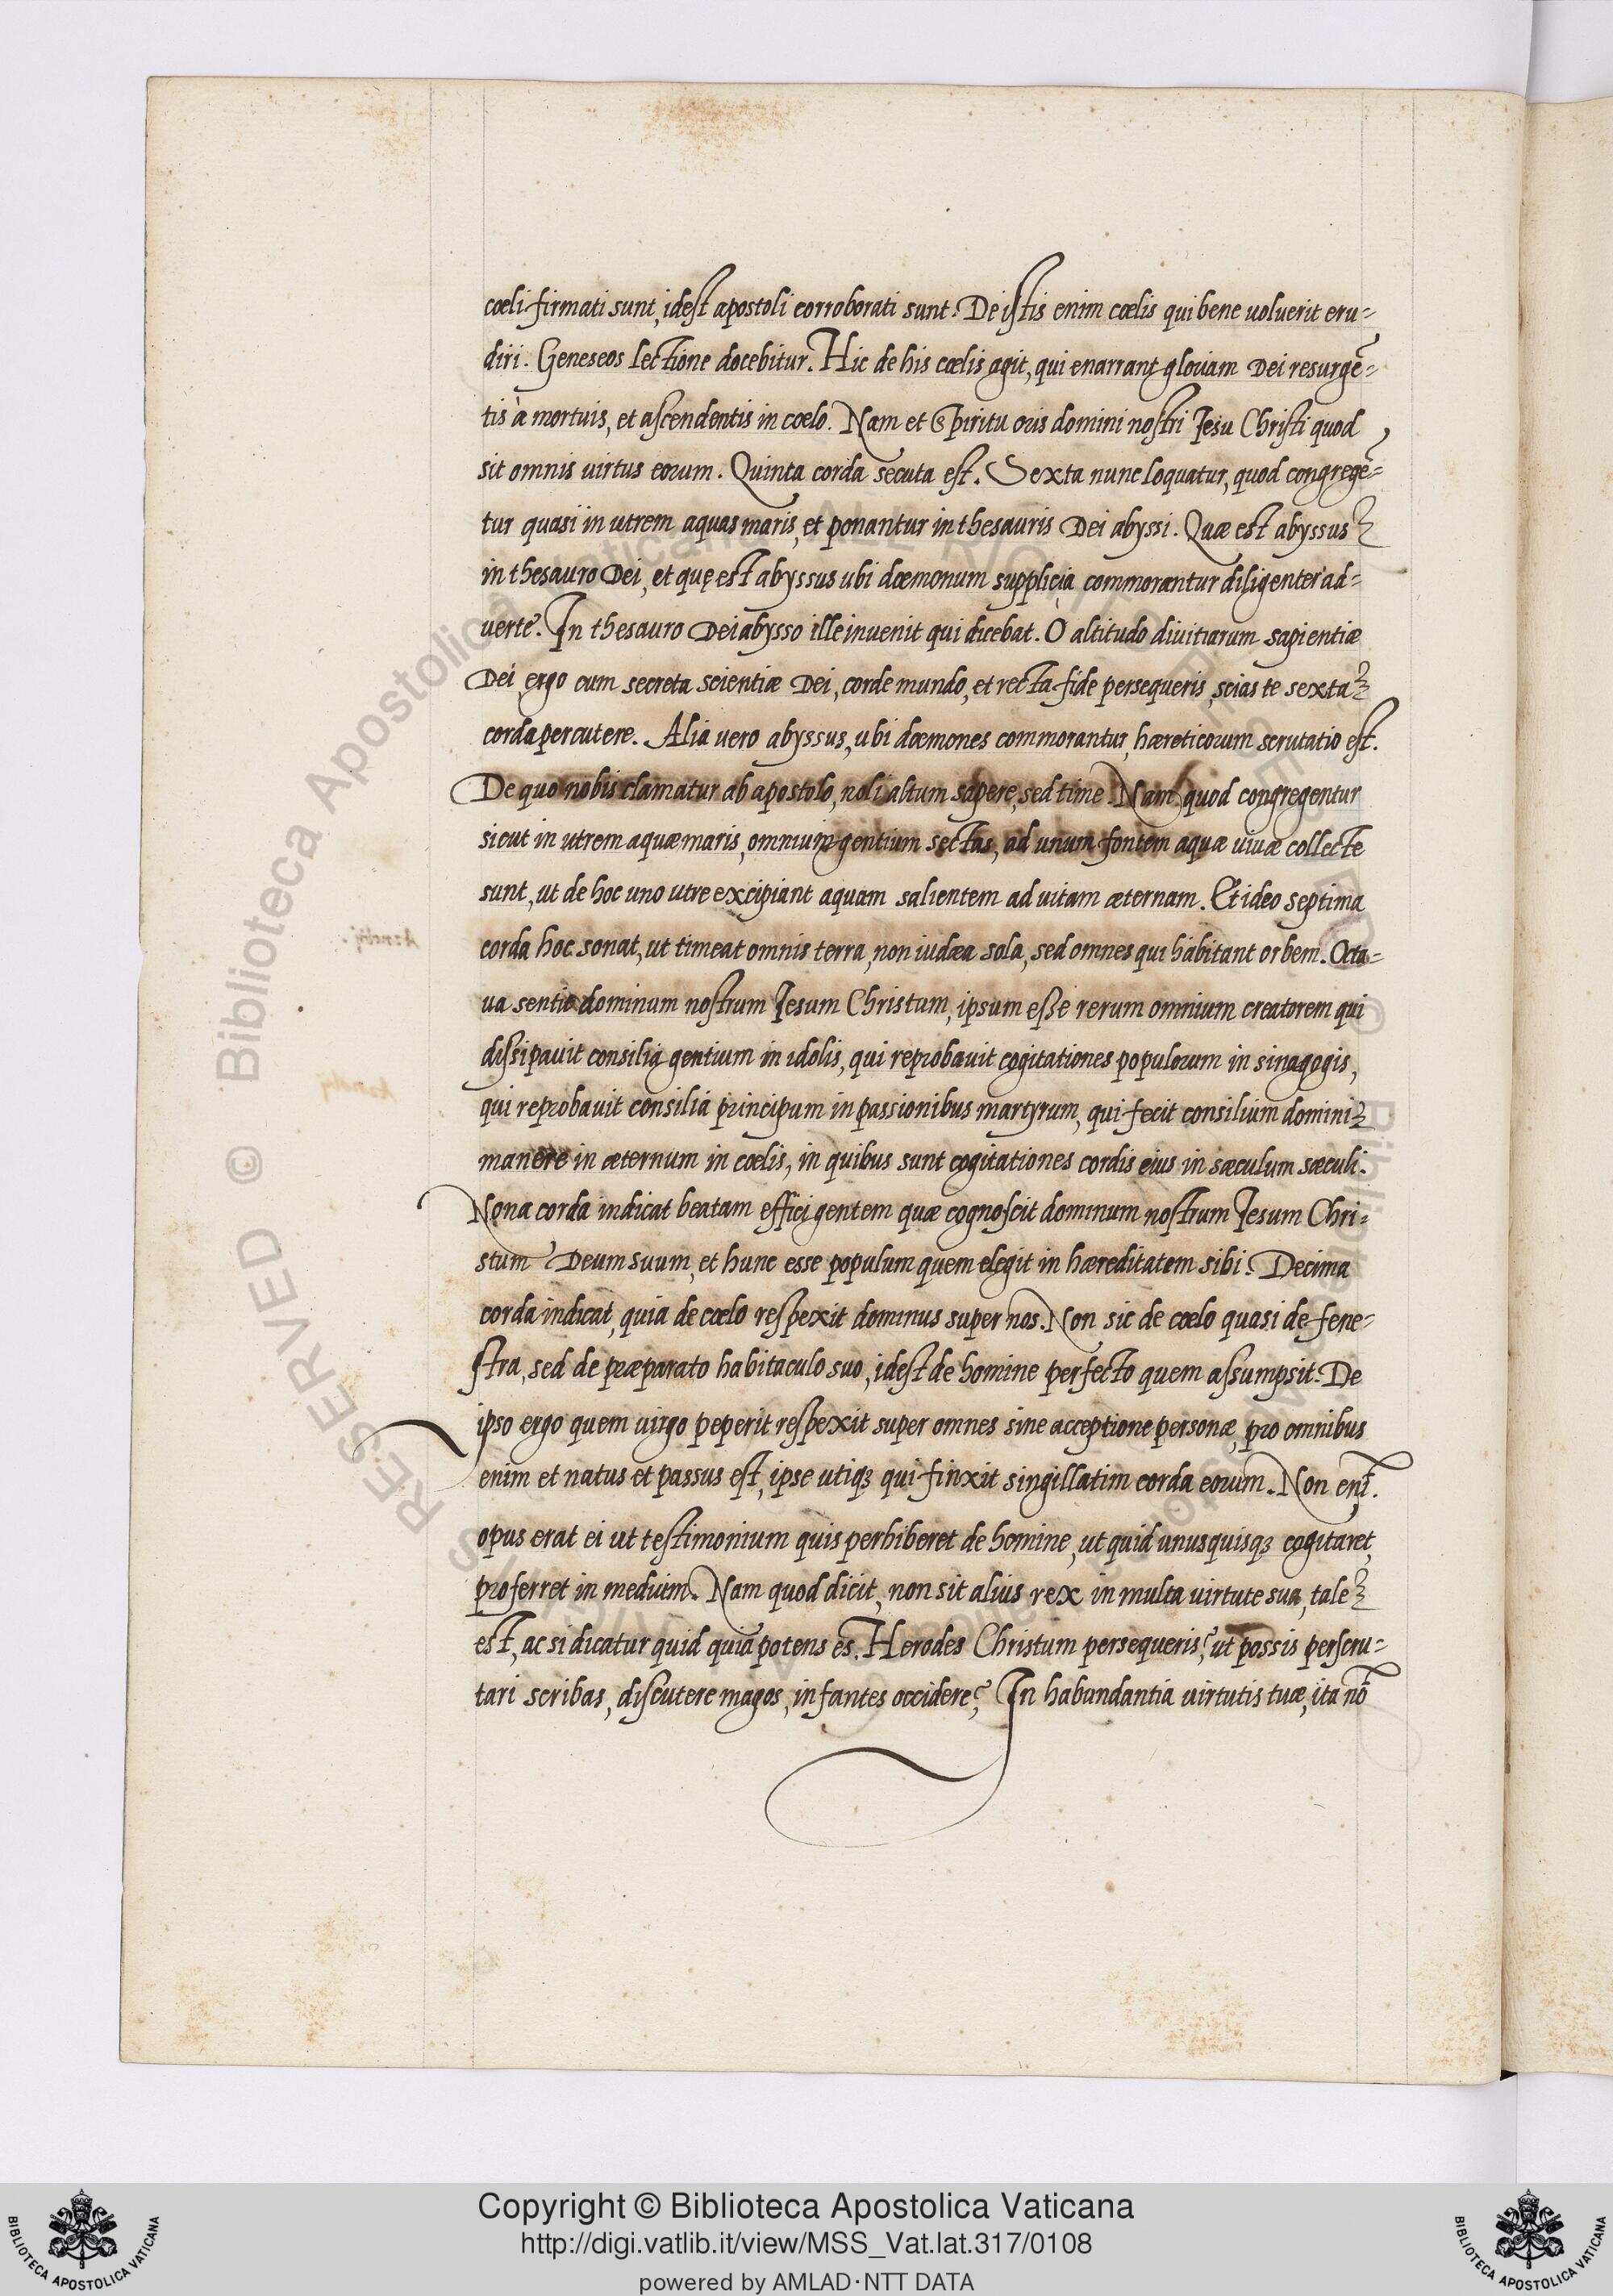 cœli firmati sunt, idest apostoli corroborati sunt. De istis enim cœlis qui bene uoluerit eru=
diri. Geneseos lectione docebitur. Hic de his cœlis agit, qui enarrant gloriam Dei resurgē=
tis à mortuis, et ascendentis in cœlo. Nam et Spiritu oris domini nostri Jesu Christi quod
sit omnis uirtus eorum. Quinta corda secuta est. Sexta nunc loquatur, quod congregē=
tur quasi in utrem aquas maris, et ponantur in thesauris Dei abyssi. Quæ est abyssus
in thesauro Dei, et quę est abyssus ubi dæmonum supplicia commorantur diligenter ad=
uerte. In thesauro Dei abysso ille inuenit qui dicebat. O altitudo diuitiarum sapientiæ
Dei, ergo cum secreta scientiæ Dei, corde mundo, et recta fide persequeris, scias te sexta
corda percutere. Alia uero abyssus, ubi dæmones commorantur, hæreticorum scrutatio est.
De quo nobis clamatur ab apostolo, noli altum sapere, sed time. Nam quod congregentur
sicut in utrem aquæ maris, omnium gentium sectas, ad unum fontem aquæ uiuæ collecte
sunt, ut de hoc uno utre excipiant aquam salientem ad uitam æternam. Et ideo septima
corda hoc sonat, ut timeat omnis terra, non iudæa sola, sed omnes qui habitant orbem. Octa=
ua sentit dominum nostrum Jesum Christum, ipsum esse rerum omnium creatorem qui
dissipauit consilia gentium in idolis, qui reprobauit cogitationes populorum in sinagogis,
qui reprobauit consilia principum in passionibus martyrum, qui fecit consilium domini
manere in æternum in cœlis, in quibus sunt cogitationes cordis eius in sæculum sæculi.
Nona corda indicat beatam effici gentem quæ cognoscit dominum nostrum Jesum Chri=
stum Deum suum, et hunc esse populum quem elegit in hæreditatem sibi. Decima
corda indicat, quia de cœlo respexit dominus super nos. Non sic de cœlo quasi de fene=
stra, sed de præparato habitaculo suo, idest de homine perfecto quem assumpsit. De
ipso ergo quem uirgo peperit respexit super omnes sine acceptione personæ, pro omnibus
enim et natus et passus est, ipse utiqꝫ qui finxit singillatim corda eorum. Non enī.
opus erat ei ut testimonium quis perhiberet de homine, ut quid unusquisqꝫ cogitaret,
proferret in medium. Nam quod dicit, non sit alius rex in multa uirtute sua, tale
est, ac si dicatur quid quia potens es. Herodes Christum persequeris? ut possis perscru=
tari scribas, discutere magos, infantes occidere? In habundantia uirtutis tuæ, ita nō
Copyright © Biblioteca Apostolica Vaticana
http://digi.vatlib.it/view/MSS_Vat.lat.317/0108
powered by AMLAD·NTT DATA
BIBLIOTECA APOSTOLICA VATICANA
BIBLIOTECA APOSTOLICA VATICANA